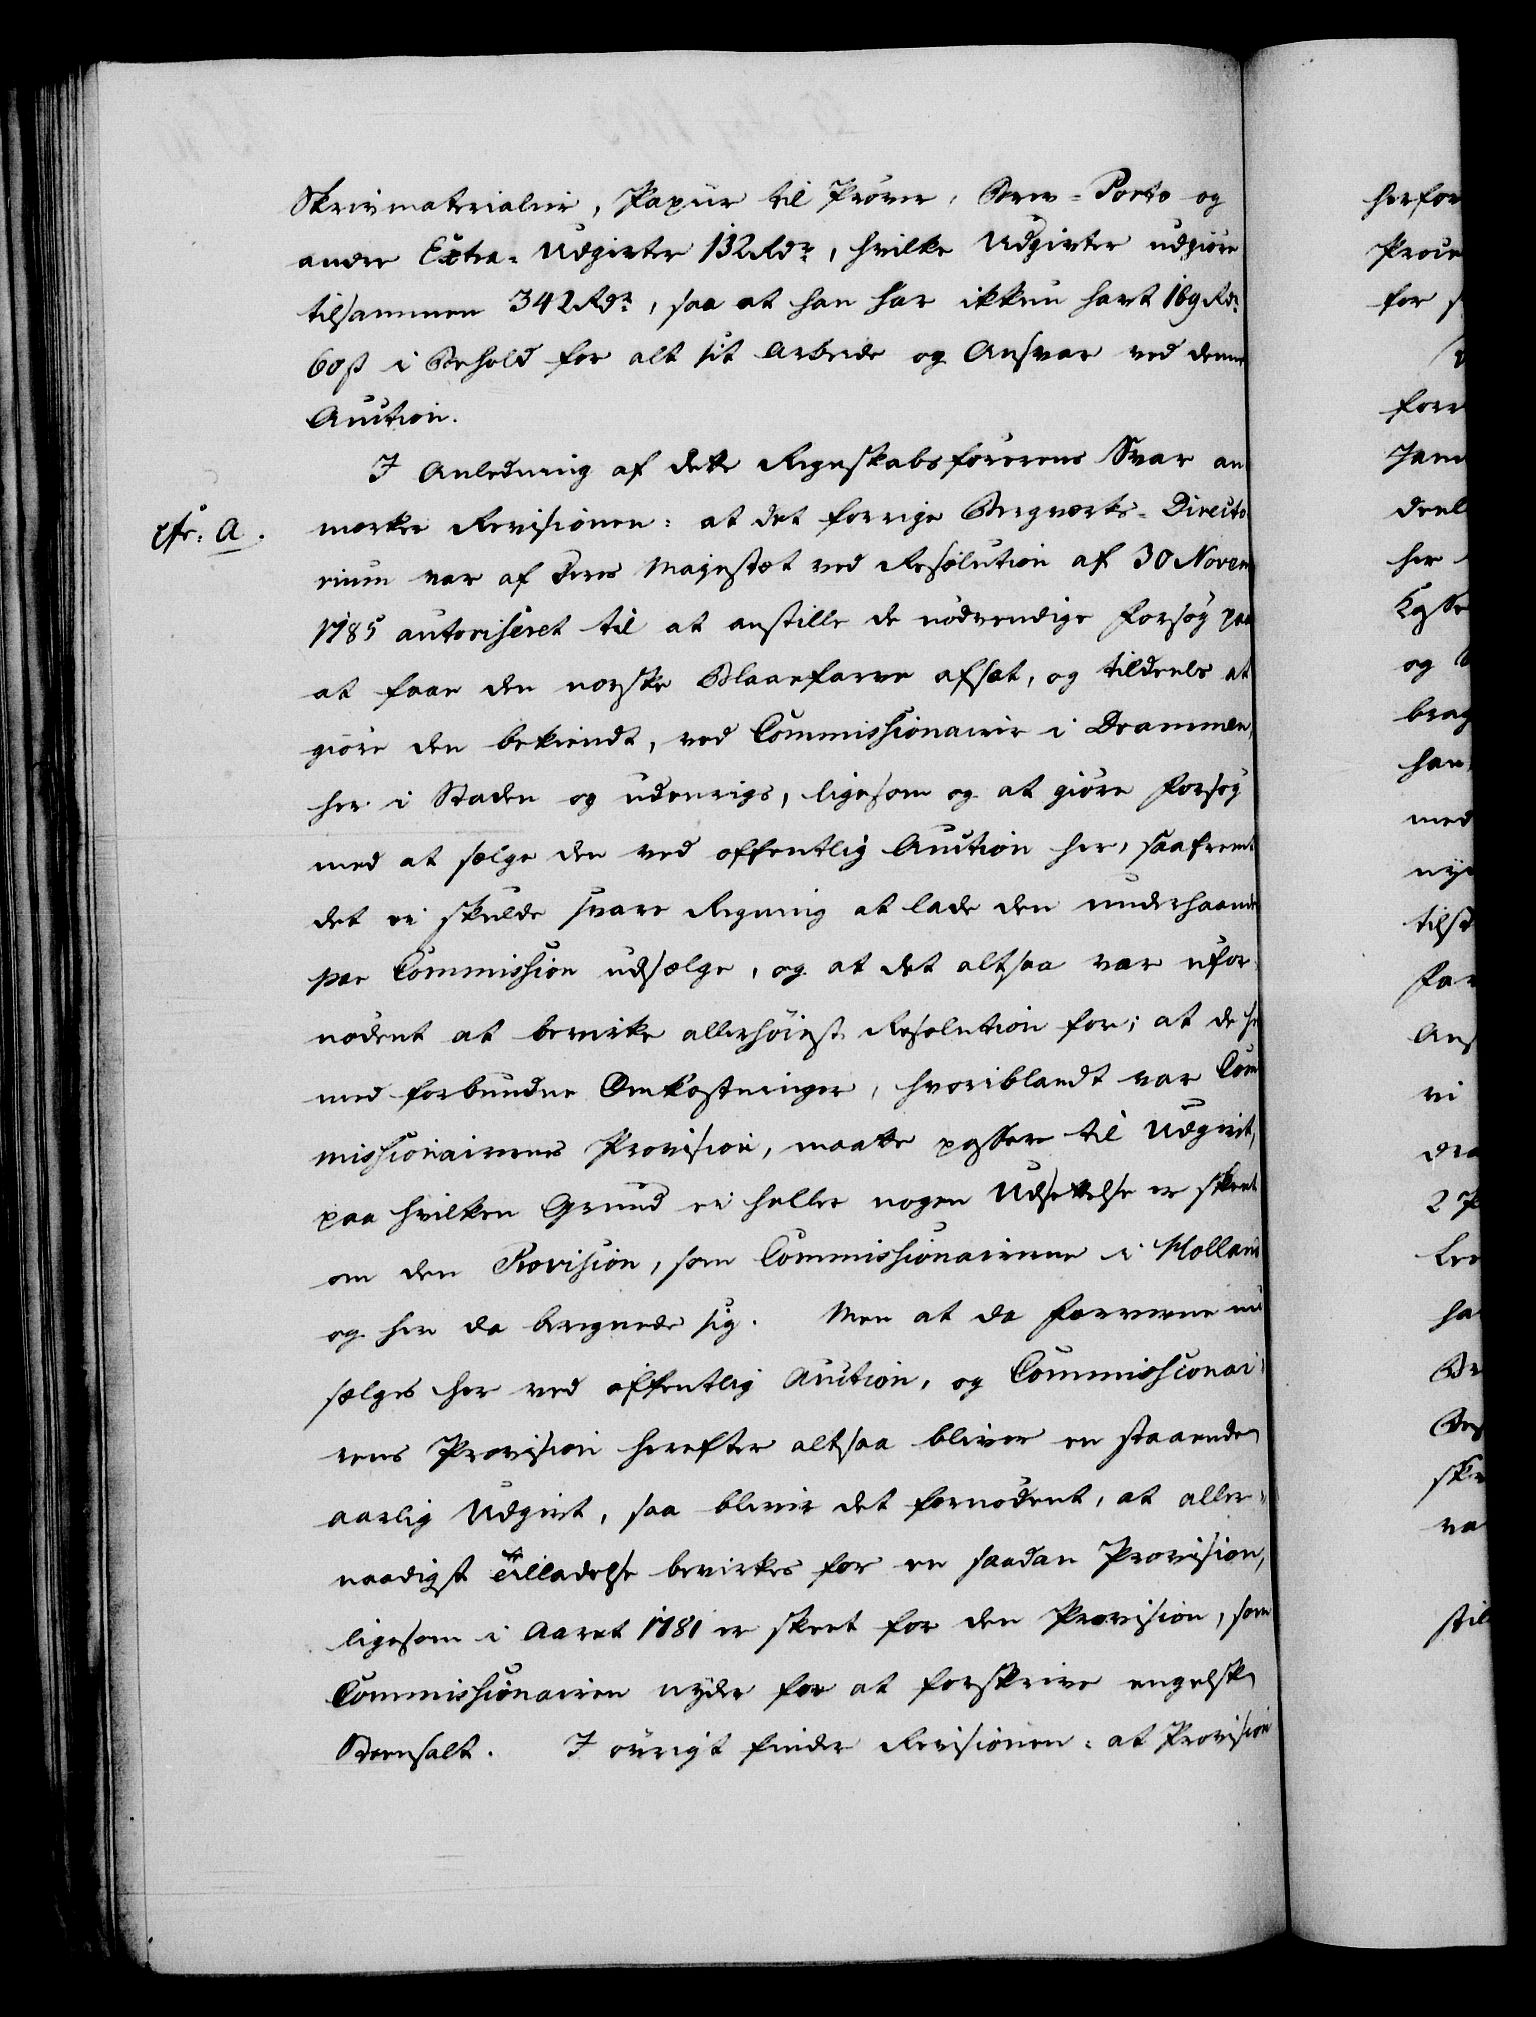 Skrivmaterialier, Papiir til Prøver, Brev-Porto og
andre Extra-Udgivter 132 Rdr, hvilke Udgivter udgiøre
tilsammen 342 Rdr, saa at han har ikkun havt 169 Rdr
60 ß i Behold for alt sit Arbeide og Ansvar ved denne
Auction.
I Anledning af dette Regnskabsførerens Svar an
cfr: A.
mærker Revisionen: at det forrige Bergværks-Directo
rium var af Deres Majestæt ved Resolution af 30 Novem
1785 autoriseret til at anstille de nødvendige Forsøg paa
at faae den norske Blaaefarve afsat, og tildeels at
giøre den bekiendt, ved Commissionairer i Drammen,
her i Staden og udenrigs, ligesom og at giøre Forsøg
med at sælge den ved offentlig Auction her, saafremt
det ei skulde svare Regning at lade den underhaanden
per Commission udsælge, og at det altsaa var ufor
nødent at bevirke allerhøiest Resolution for; at de her
med forbundne Omkostninger, hvoriblandt var Com
missionairernes Provision, maatte passere til Udgivt,
paa hvilken Grund ei heller nogen Udsættelse er skeet
om den Provision, som Commissionairerne i Holland
og her da beregnede sig. Men at da Farverne nu
sælges her ved offentlig Auction, og Commissionai-
rens Provision herefter altsaa bliver en staaende
aarlig Udgivt, saa bliver det fornødent, at aller-
naadigst Tilladelse bevirkes for en saadan Provision,
ligesom i Aaret 1781 er skeet for den Provision, som
Commissionairen nyder for at forskrive engelsk
Steensalt. I øvrigt finder Revisionen: at Provision
herfor
for
han
med
og